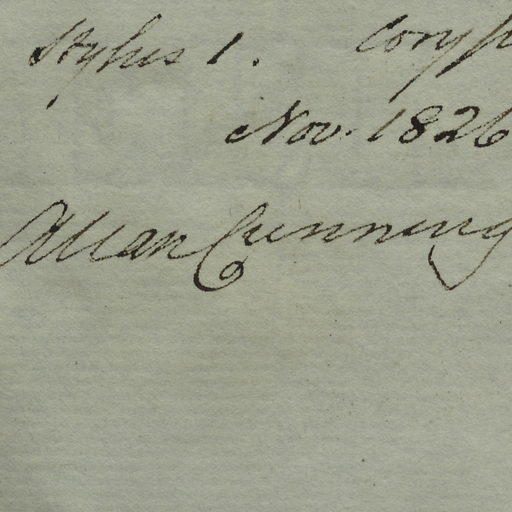 Stylus 1. Coryp
Nov. 1826
Allan Cunning